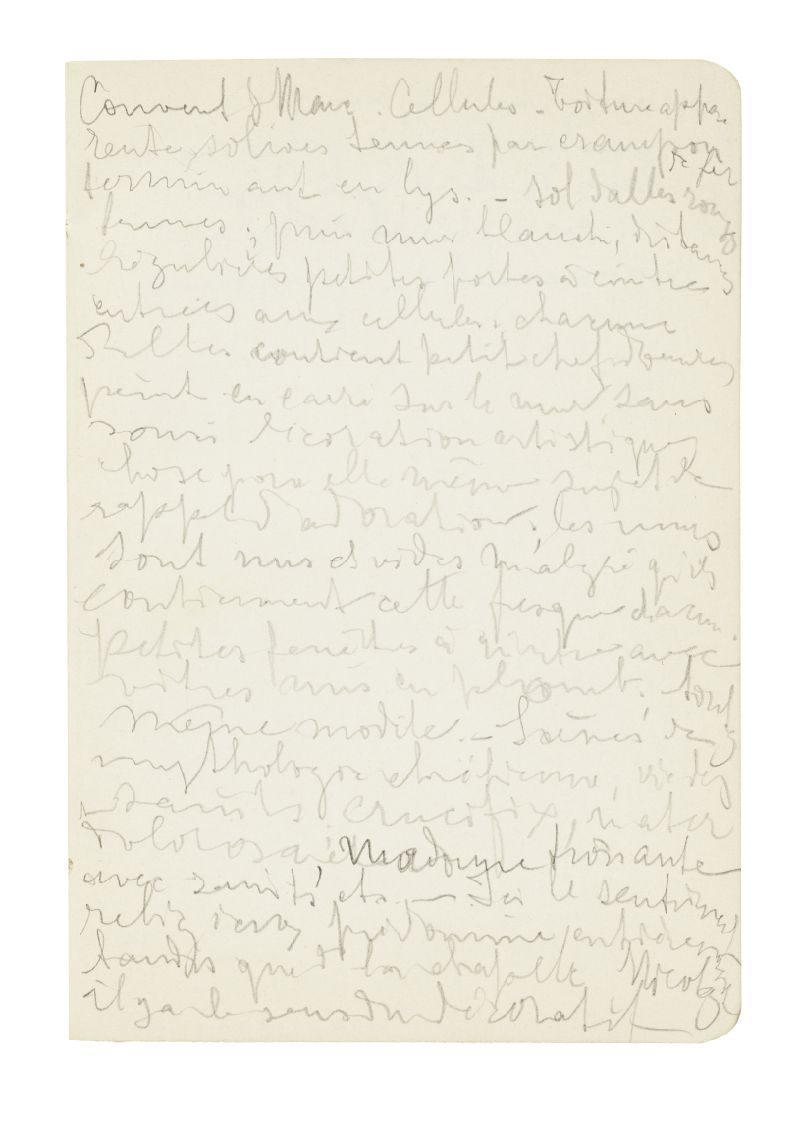 Couvent S Marc. Cellules - Toiture appa-
rente, solives tenues par crampon
de fer
terminant en lys. - sol dalles rouges
ternes; puis mur blanchi, distances
régulières petites portes à cintre
entrées aux cellules. chacune
d'elles contient petit chef d'oeuvre
peint en carré sur le mur, sans
souci décoration artistique
chose pour elle même sujet de
rappel d'adoration; les murs
sont nus et vides malgré qu'ils
contiennent cette fresque chacun.
petites fenêtres à cintre avec
vitres mis en plomb. tout
même modèle. - Scènes de
mythologie chrétienne, vie des
saints crucifix, mater
dolorosa, madonne trônante
avec saints, etc. - Ici le sentiment
religieux prédomine entièrement
tandis que d la chapelle Nicolas
il y a le sens du décoratif